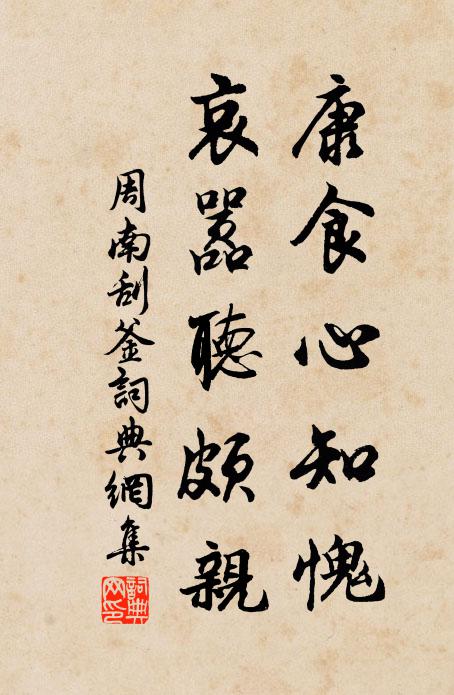 康食心知愧
哀嚣聽頗親
周南刮釜詞典網集
詞典網印